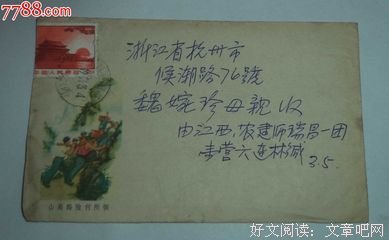 7788.com
中国人民邮政
浙江省杭州市
候潮路76號
魏婉珍母親收
由江西.农建师瑞昌一团
壹营六连林
3.5.
山英路险何所惧
好文阅读：文章吧网